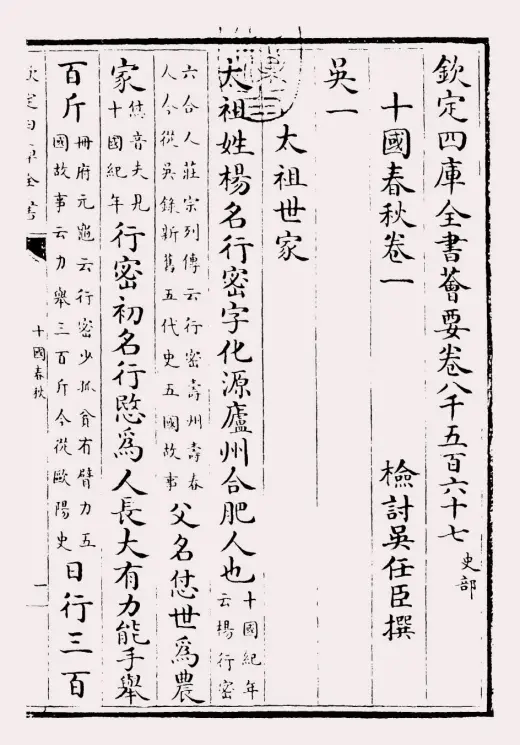 欽定四庫全書薈要卷八千五百六十七 史部
十國春秋卷一
檢討吳任臣撰
吳一
太祖世家
太祖姓楊名行密字化源廬州合肥人也 十國紀年云楊行密
六合人莊宗列傳云行密壽州壽春人今從吳錄新舊五代史五國故事 父名怤世為農
家 怤音夫見十國紀年 行密初名行愍為人長大有力能手舉
百斤 冊府元龜云行密少孤貧有臂力五國故事云力舉三百斤今從歐陽史 日行三百
欽定四庫全書
十國春秋
一